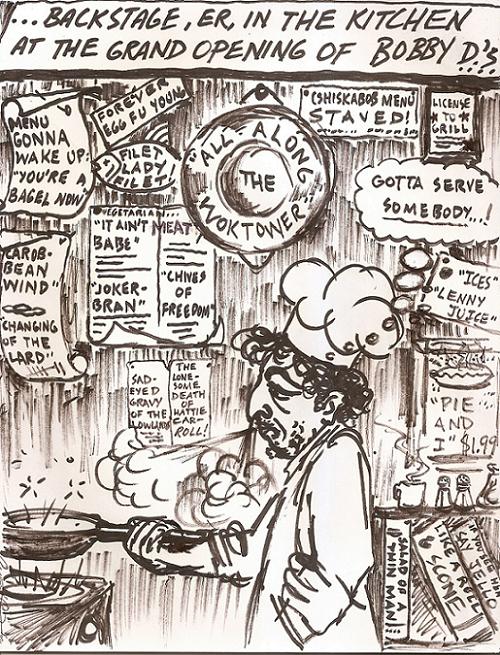 ...BACKSTAGE, ER, IN THE KITCHEN
AT THE GRAND OPENING OF BOBBY D.'S
MENU
GONNA
WAKE UP:
"YOU'RE A
BAGEL NOW"
FOREVER
EGG FU YOUNG
FILET
LADY
FILET!
"ALL ALONG
THE
WOKTOWER"
(SHISKABOB MENU
STAVED!
LICENSE
TO
GRILL
GOTTA SERVE
SOMEBODY...!
VEGETARIAN...
"IT AIN'T MEAT
BABE"
"JOKER-
BRAN"
"CHIVES
OF
FREEDOM"
CAROB-
BEAN
WIND"
CHANGING
OF THE
LARD"
"ICES
"LENNY
JUICE"
SAD-
EYED
GRAVY
OF THE
LOWLANDS
THE
LONE-
SOME
DEATH
OF
HATTIE
CAR-
ROLL!
"PIE
AND
I" $1.99
SALAD OF A
THIN MAN
LIKE A ROLL
& SCONE
IF YOU SEE
SAY